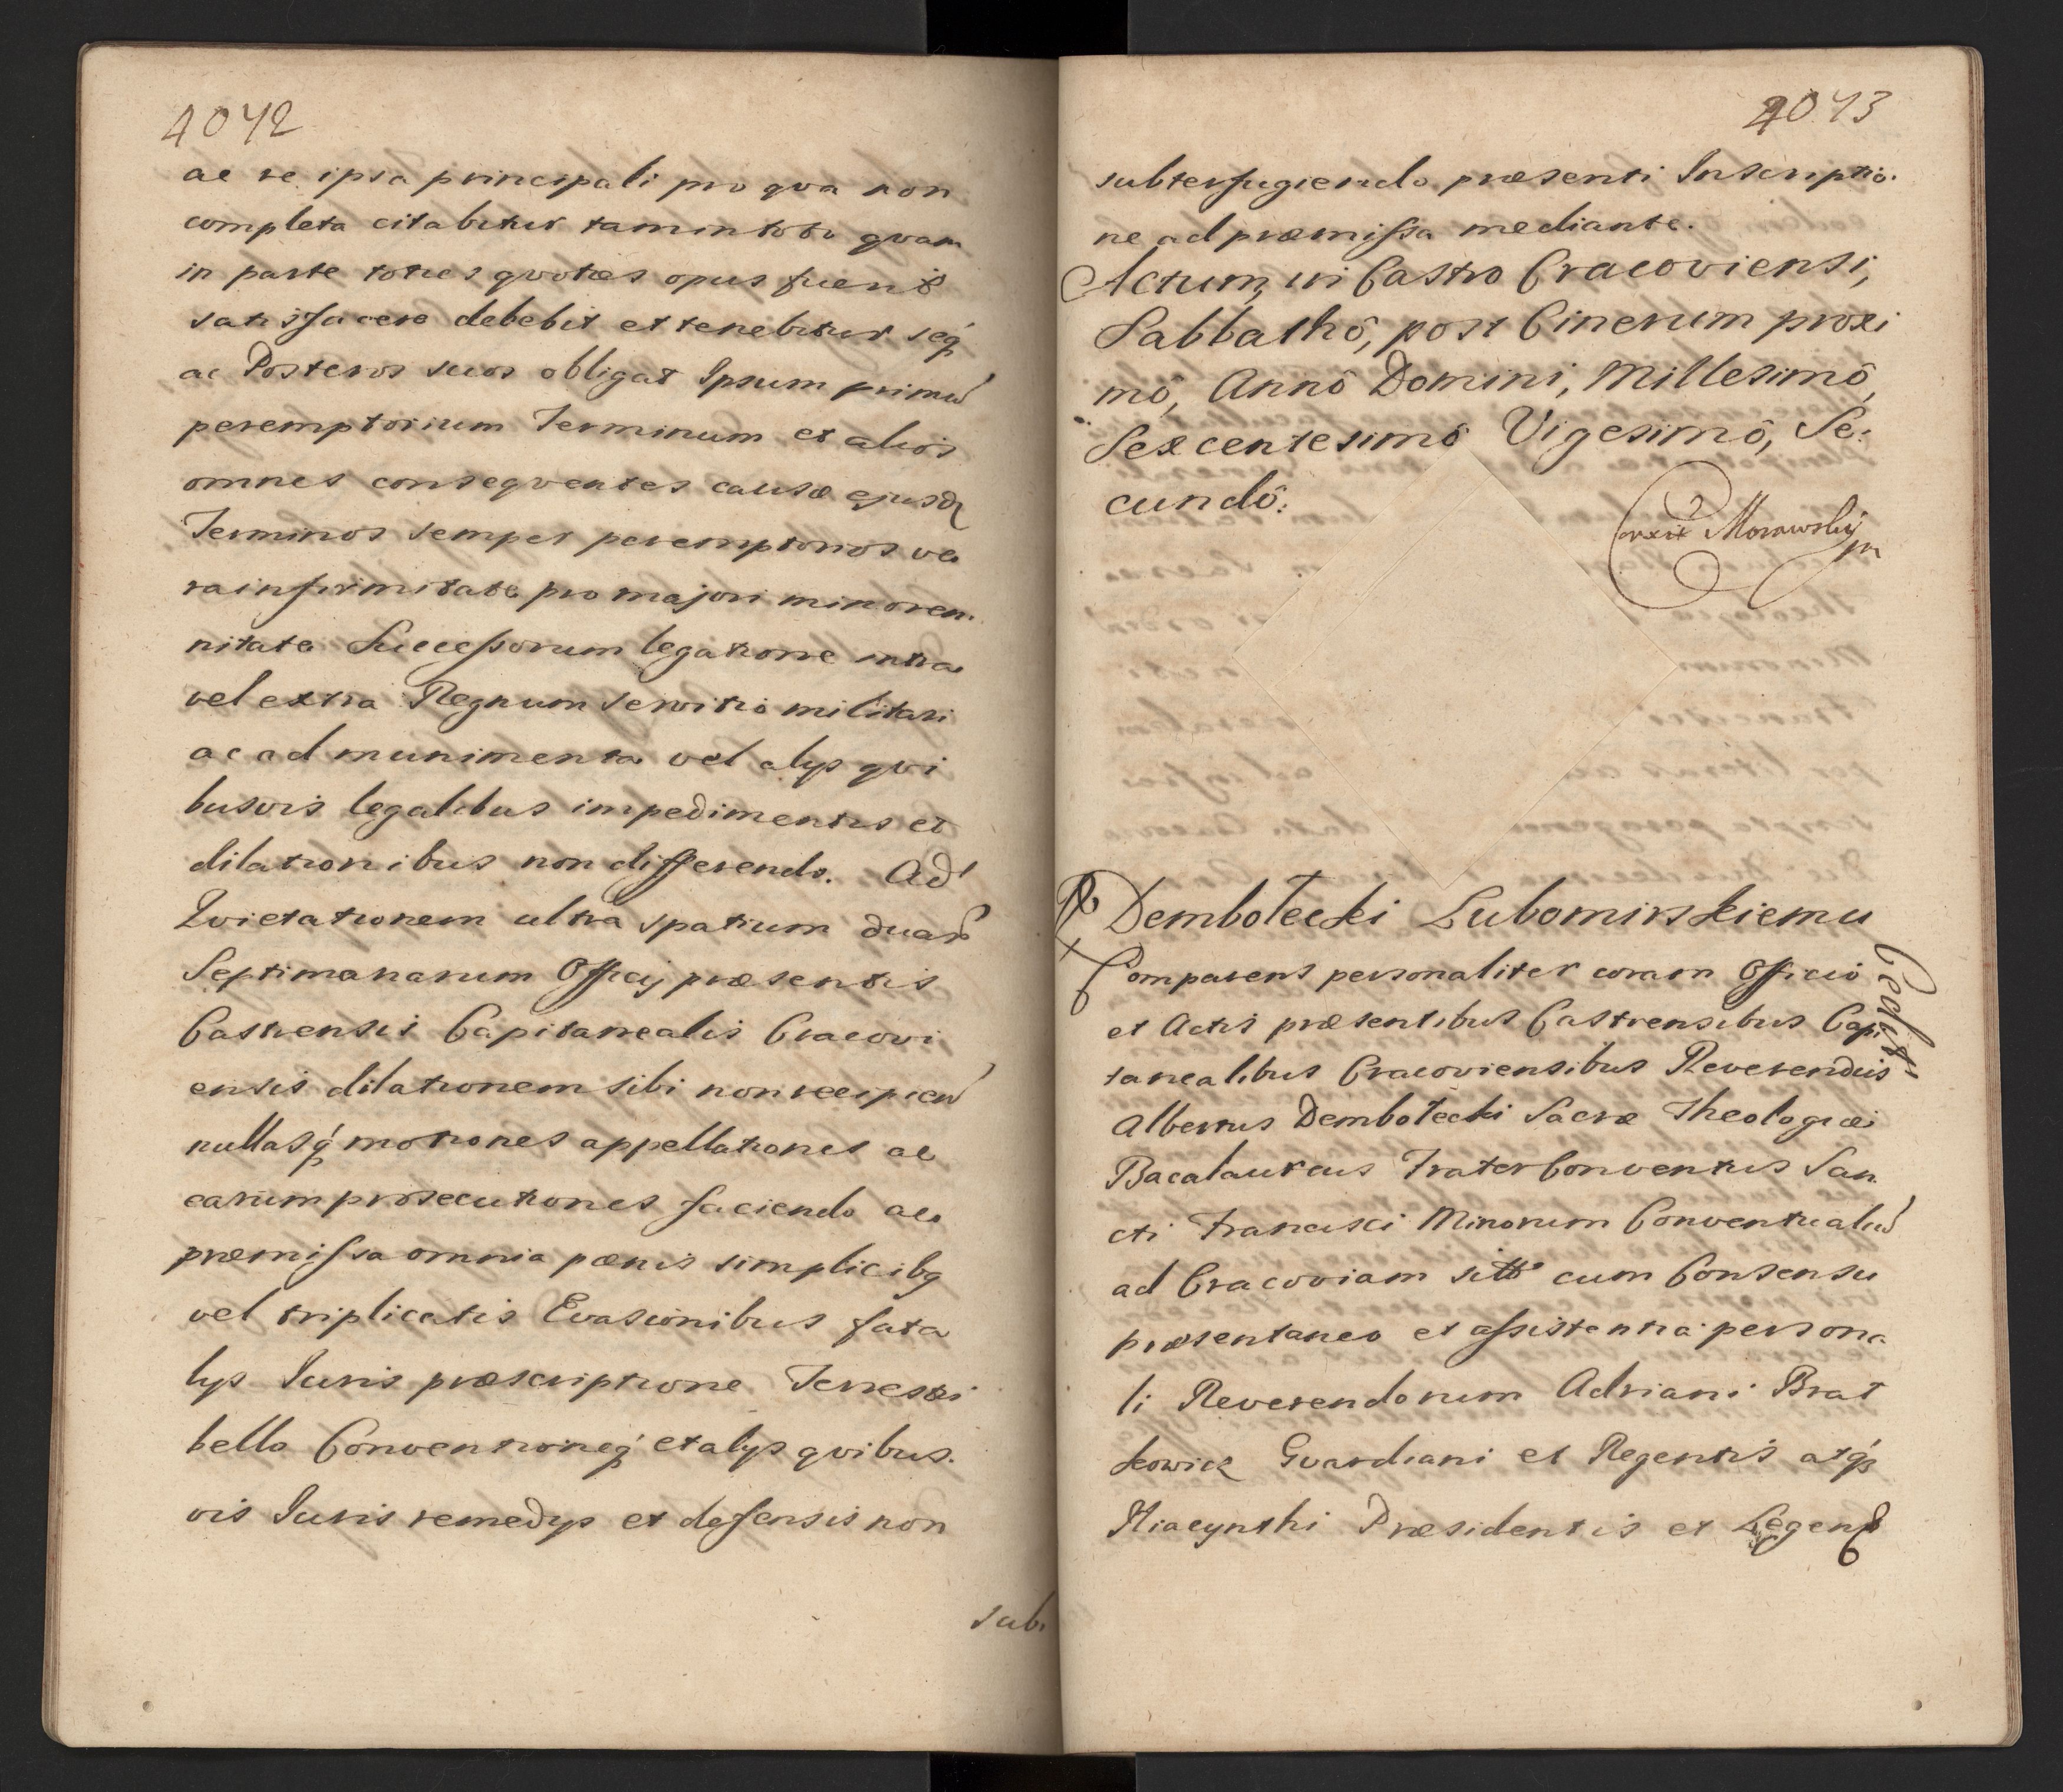 4042
ac re ipsa principali pro qva non
completa citabitur tam in toto qvam
in parte toties qvoties opus fuerit
satisfacere debebit et tenebitur seq́
ac Posteros suos obligat Ipsum primũ
peremptorium Terminum et alios
omnes conseqventes causæ ejusd
Terminos semper peremptorios ve
ra infirmitate pro majori minoren
nitate Successorum legatione intra
vel extra Regnum servitio militari
ac ad munimenta vel alys qvi
busvis legalibus impedimentis et
dilationibus non differendo. Ad
Qvietationem ultra spatium duar
Septimanarum Officij præsentis
Castrensis Capitanealis Cracovi
ensis dilationem sibi non recipien
nullasq́ motiones appellationes ac
earum prosecutiones faciendo ac
præmissa omnia pænis simplicibq
vel triplicatis Evasionibus fata
lys Iuris præscriptione Terrestri
bello Conventioneq́ et alys qvibus.
vis Iuris remedys et defensis non
sub.
4043
subterfugiendo præsenti Inscriptio.
ne ad præmissa mediante.
Actum, in Castro Cracoviensi,
Sabbathô, post Cinerum proxi
mô, Annô Domini, Millesimô,
Sexcentesimô Vigesimô, Se:
cundô:
Corxit Morawskij
mp
Dembołecki Lubomirskiemu
Comparens personaliter coram Officio
et Actis præsentibus Castrensibus Capi
tanealibus Cracoviensibus Reverendus
Cedit
Albertus Dembołecki Sacræ Theologiæ
Bacalaureus Frater Conventus San
cti Francisci Minorum Conventualiũ
ad Cracoviam sitt cum Consensu
præsentaneo et assistentia persona
li Reverendorum Adriani Brat
kowicz Gvardiani et Regentis atq́
Hiacynthi Præsidentis et Legent